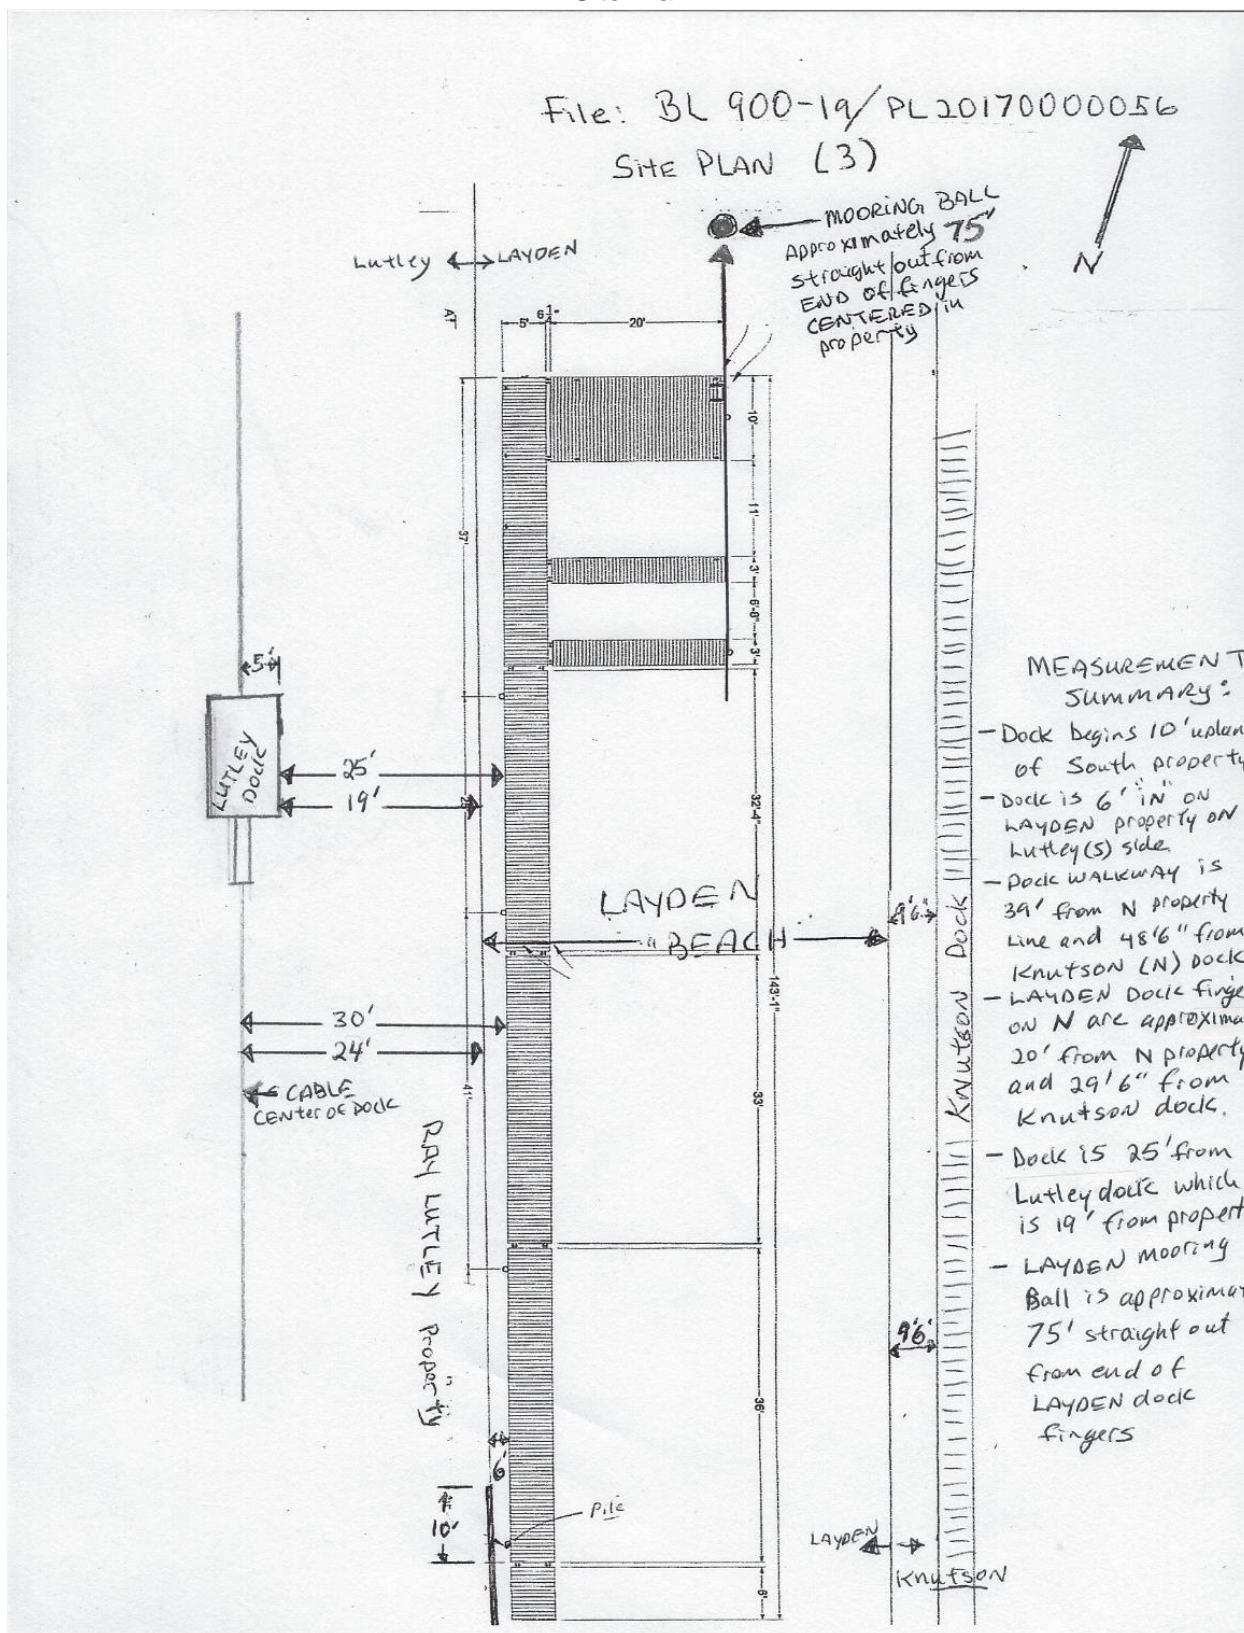 File: BL 900-19/PL20170000056
SITE PLAN (3)
MOORING BALL
Approximately 75'
straight out from
END of fingers
CENTERED in
property
N
Lutley
LAYDEN
AT
5'
6"
20'
37'
10'
11'
3'
6'-8"
3'
5'
LUTLEY
DOCK
25'
19'
32'-4"
LAYDEN
"BEACH
9'6"
Knutson Dock
143'-1"
30'
24'
CABLE
CENTER OF DOCK
41'
33'
RAY LUTLEY Property
36'
9'6"
6'
10'
pile
6'
LAYDEN
Knutson
MEASUREMENT
SUMMARY:
- Dock begins 10'
of South property
- Dock is 6' "IN" ON
LAYDEN property on
Lutley(S) side.
- Dock WALKWAY is
39' from N property
Line and 48'6" from
Knutson (N) Dock
- LAYDEN Dock
on N are
20' from N property
and 29'6" from
Knutson dock.
- Dock is 25' from
Lutley dock which
is 19' from
- LAYDEN mooring
Ball is
75' straight out
from end of
LAYDEN dock
fingers